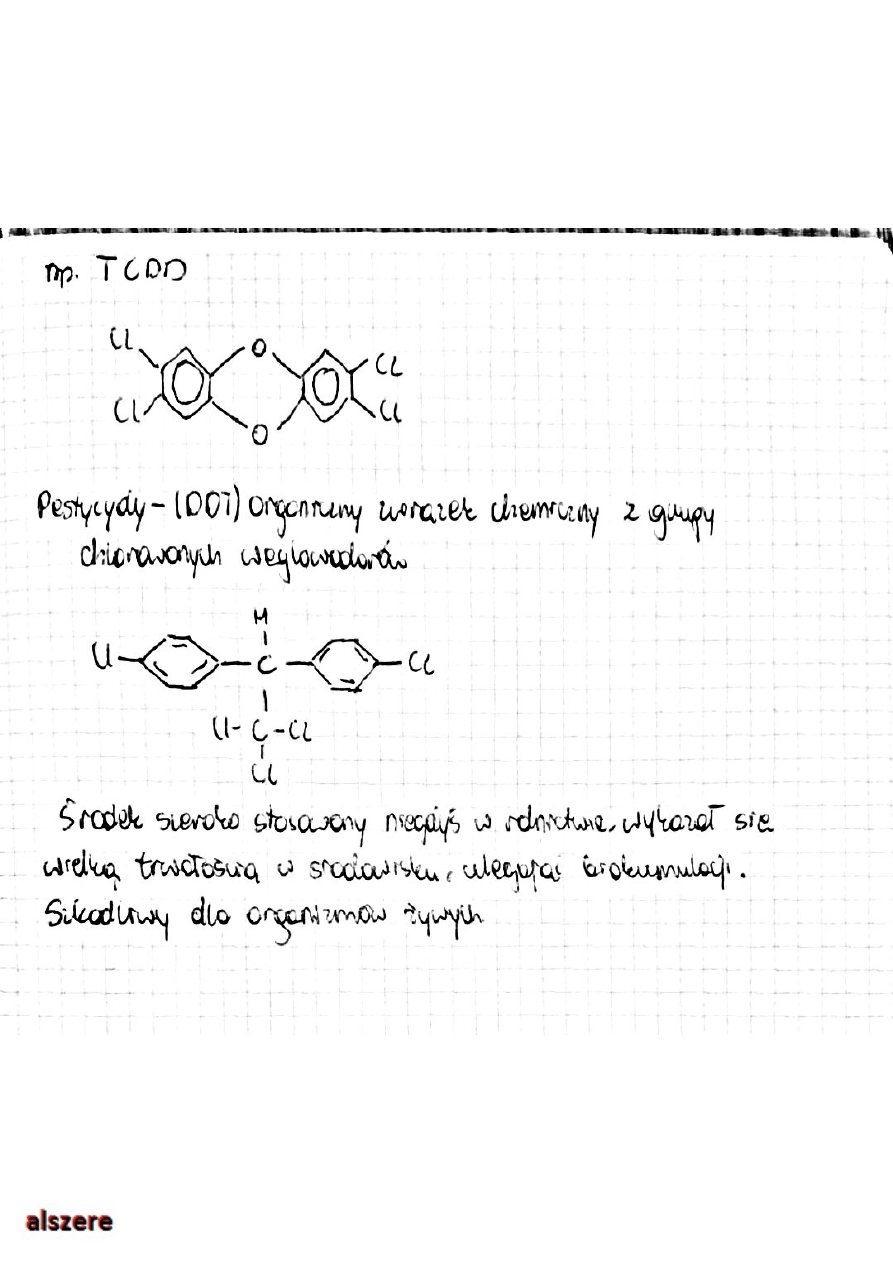 np. TCDD
Cl O Cl
Cl O Cl
Pestycydy - (DDT) organiczny związek chemiczny z grupy
chlorowanych węglowodorów
H
Cl C Cl
Cl - C - Cl
Cl
Środek szeroko stosowany niegdyś w rolnictwie, wykazał się
wielką trwałością w środowisku, ulegając biokumulacji.
Szkodliwy dla organizmów żywych
alszere